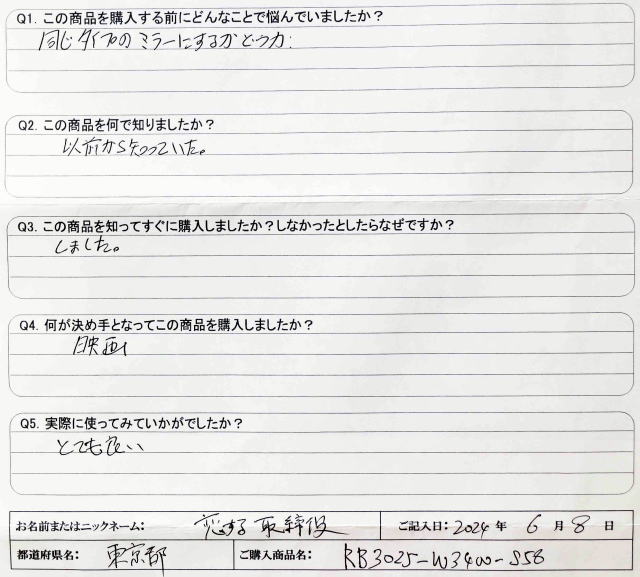 Q1. この商品を購入する前にどんなことで悩んでいましたか?
同じタイプのミラーにするかどうか
Q2. この商品を何で知りましたか?
以前から知っていた。
Q3. この商品を知ってすぐに購入しましたか?しなかったとしたらなぜですか?
しました。
Q4. 何が決め手となってこの商品を購入しましたか?
映画
Q5. 実際に使ってみていかがでしたか?
とても良い
お名前またはニックネーム: 恋する取締役 ご記入日: 2024 年 6 月 8 日
都道府県名: 東京都 ご購入商品名: RB3025-W3400-S58